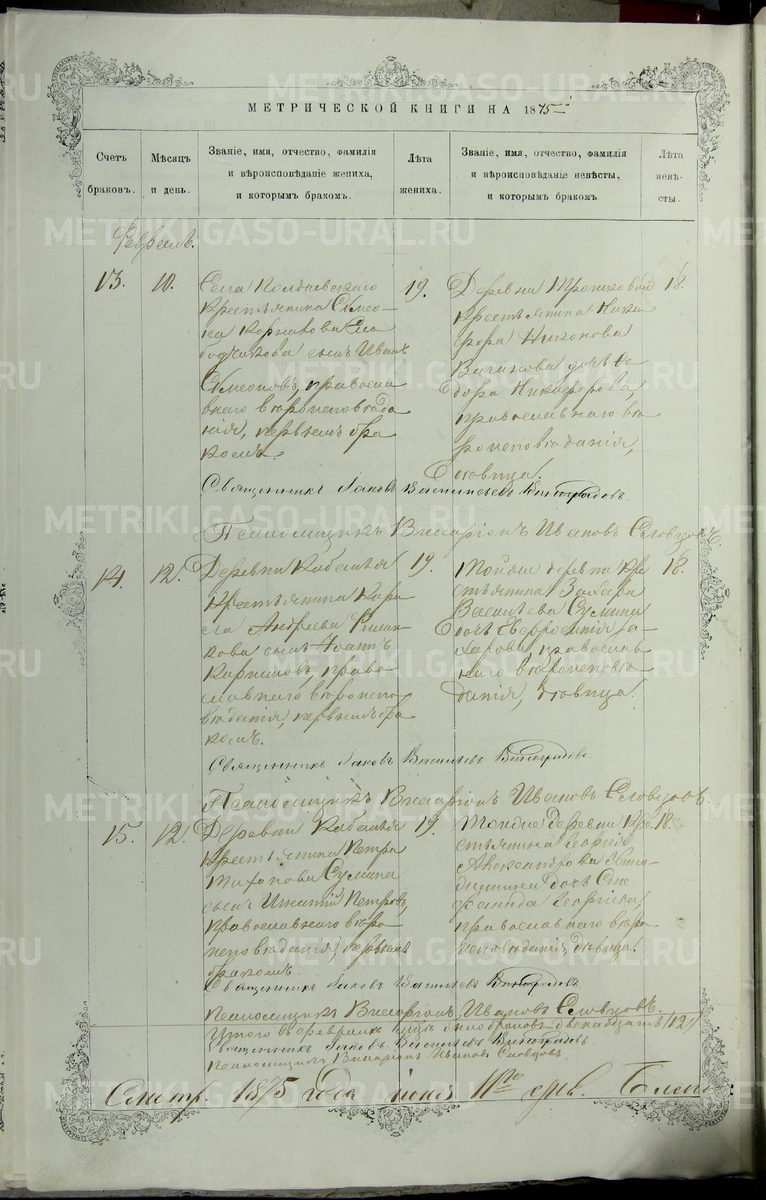 МЕТРИЧЕСКОЙ КНИГИ НА 1875
Счетъ браковъ.
Мѣсяцъ и день.
Званіе, имя, отчество, фамилія
и вѣроисповѣданіе жениха,
и которымъ бракомъ.
Лѣта жениха.
Званіе, имя, отчество, фамилія
и вѣроисповѣданіе невѣсты,
и которымъ бракомъ
Лѣта невѣсты.
Февраль.
13.
10.
Села
Крестьянина Симео-
на
сынъ Иванъ
Симеоновъ, правосла-
внаго вѣроисповѣда
нія, первымъ бра
комъ.
19.
Деревни
Крестьянина Ники
фора Никонова
Вагинова дочь Ѳе
дора Никифорова,
православнаго вѣ
роисповѣданія,
дѣвица.
18.
Священникъ Іаковъ Васильевъ Виноградовъ.
Псаломщикъ Виссаріонъ Ивановъ Словцовъ.
14.
12.
Деревни Кабанья
Крестьянина Кори
ла Андреева
сынъ Іоаннъ
Кириловъ, право
славнаго вѣроиспо
вѣданія, первымъ бра
комъ.
19.
Тойже деревни Кре
стьянина Захара
Васильева Сумина
дочь Евфросинія За-
харова, православ
наго вѣроисповѣ
данія, дѣвица.
18.
Священникъ Іаковъ Васильевъ Виноградовъ.
Псаломщикъ Виссаріонъ Ивановъ Словцовъ.
15.
12.
Деревни Кабанья
Крестьянина Петра
Сумина
сынъ Игнатій Петровъ,
православнаго вѣро
исповѣданія, первымъ
бракомъ.
19.
Тойже деревни Кре
стьянина Георгія
Александрова
дочь Сте
фанида Георгіева,
православнаго вѣро-
исповѣданія, дѣвица.
18.
Священникъ Іаковъ Васильевъ Виноградовъ.
Псаломщикъ Виссаріонъ Ивановъ Словцовъ.
Итого въ февралѣ было браковъ двѣнадцать (12)
Священникъ Іаковъ Васильевъ Виноградовъ.
Псаломщикъ Виссаріонъ Ивановъ Словцовъ.
Смотр. 1875 года іюня 11го
METRIKI.GASO-URAL.RU